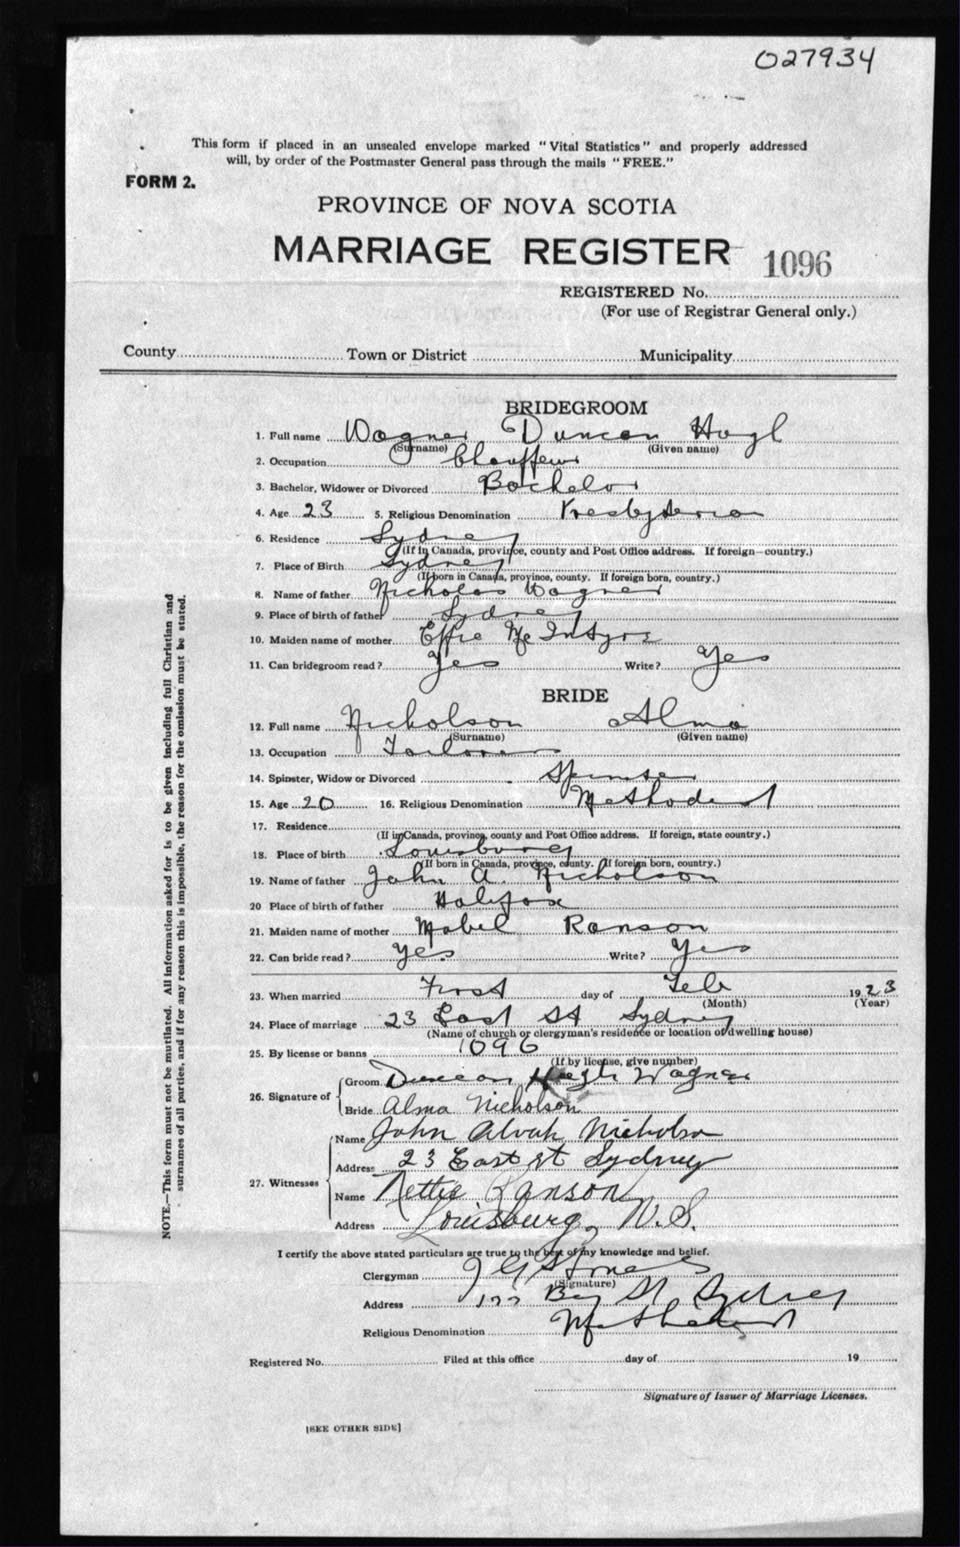 027934
This form if placed in an unsealed envelope marked "Vital Statistics" and properly addressed
will, by order of the Postmaster General pass through the mails "FREE."
FORM 2.
PROVINCE OF NOVA SCOTIA
MARRIAGE REGISTER 1096
REGISTERED No.
(For use of Registrar General only.)
County Town or District Municipality
BRIDEGROOM
1. Full name Wagner Duncan
(Surname) (Given name)
2. Occupation Chauffeur
3. Bachelor, Widower or Divorced Bachelor
4. Age 23 5. Religious Denomination Presbyterian
6. Residence Sydney
(If in Canada, province, county and Post Office address. If foreign—country.)
7. Place of Birth Sydney
(If born in Canada, province, county. If foreign born, country.)
8. Name of father Nicholas Wagner
9. Place of birth of father Sydney
10. Maiden name of mother Effie McIntyre
11. Can bridegroom read? Yes Write? Yes
BRIDE
12. Full name Nicholson Alma
(Surname) (Given name)
13. Occupation
14. Spinster, Widow or Divorced Spinster
15. Age 20 16. Religious Denomination Methodist
17. Residence
(If in Canada, province, county and Post Office address. If foreign, state country.)
18. Place of birth Louisburg
(If born in Canada, province, county. If foreign born, country.)
19. Name of father John A. Nicholson
20 Place of birth of father Halifax
21. Maiden name of mother Mabel Ranson
22. Can bride read? Yes Write? Yes
23. When married First day of Feb 1923
(Month) (Year)
24. Place of marriage 23 East St Sydney
(Name of church or clergyman's residence or location of dwelling house)
25. By license or banns 1096
(If by license, give number)
26. Signature of Groom Duncan Hugh Wagner
Bride Alma Nicholson
27. Witnesses Name John Alvah Nicholson
Address 23 East st Sydney
Name Nettie Ranson
Address Louisburg, N.S.
I certify the above stated particulars are true to the best of my knowledge and belief.
Clergyman
(Signature)
Address St Sydney
Religious Denomination Methodist
Registered No. Filed at this office day of 19
Signature of Issuer of Marriage Licenses.
[SEE OTHER SIDE]
NOTE.—This form must not be mutilated. All information asked for is to be given including full Christian and
surnames of all parties, and if for any reason this is impossible, the reason for the omission must be stated.